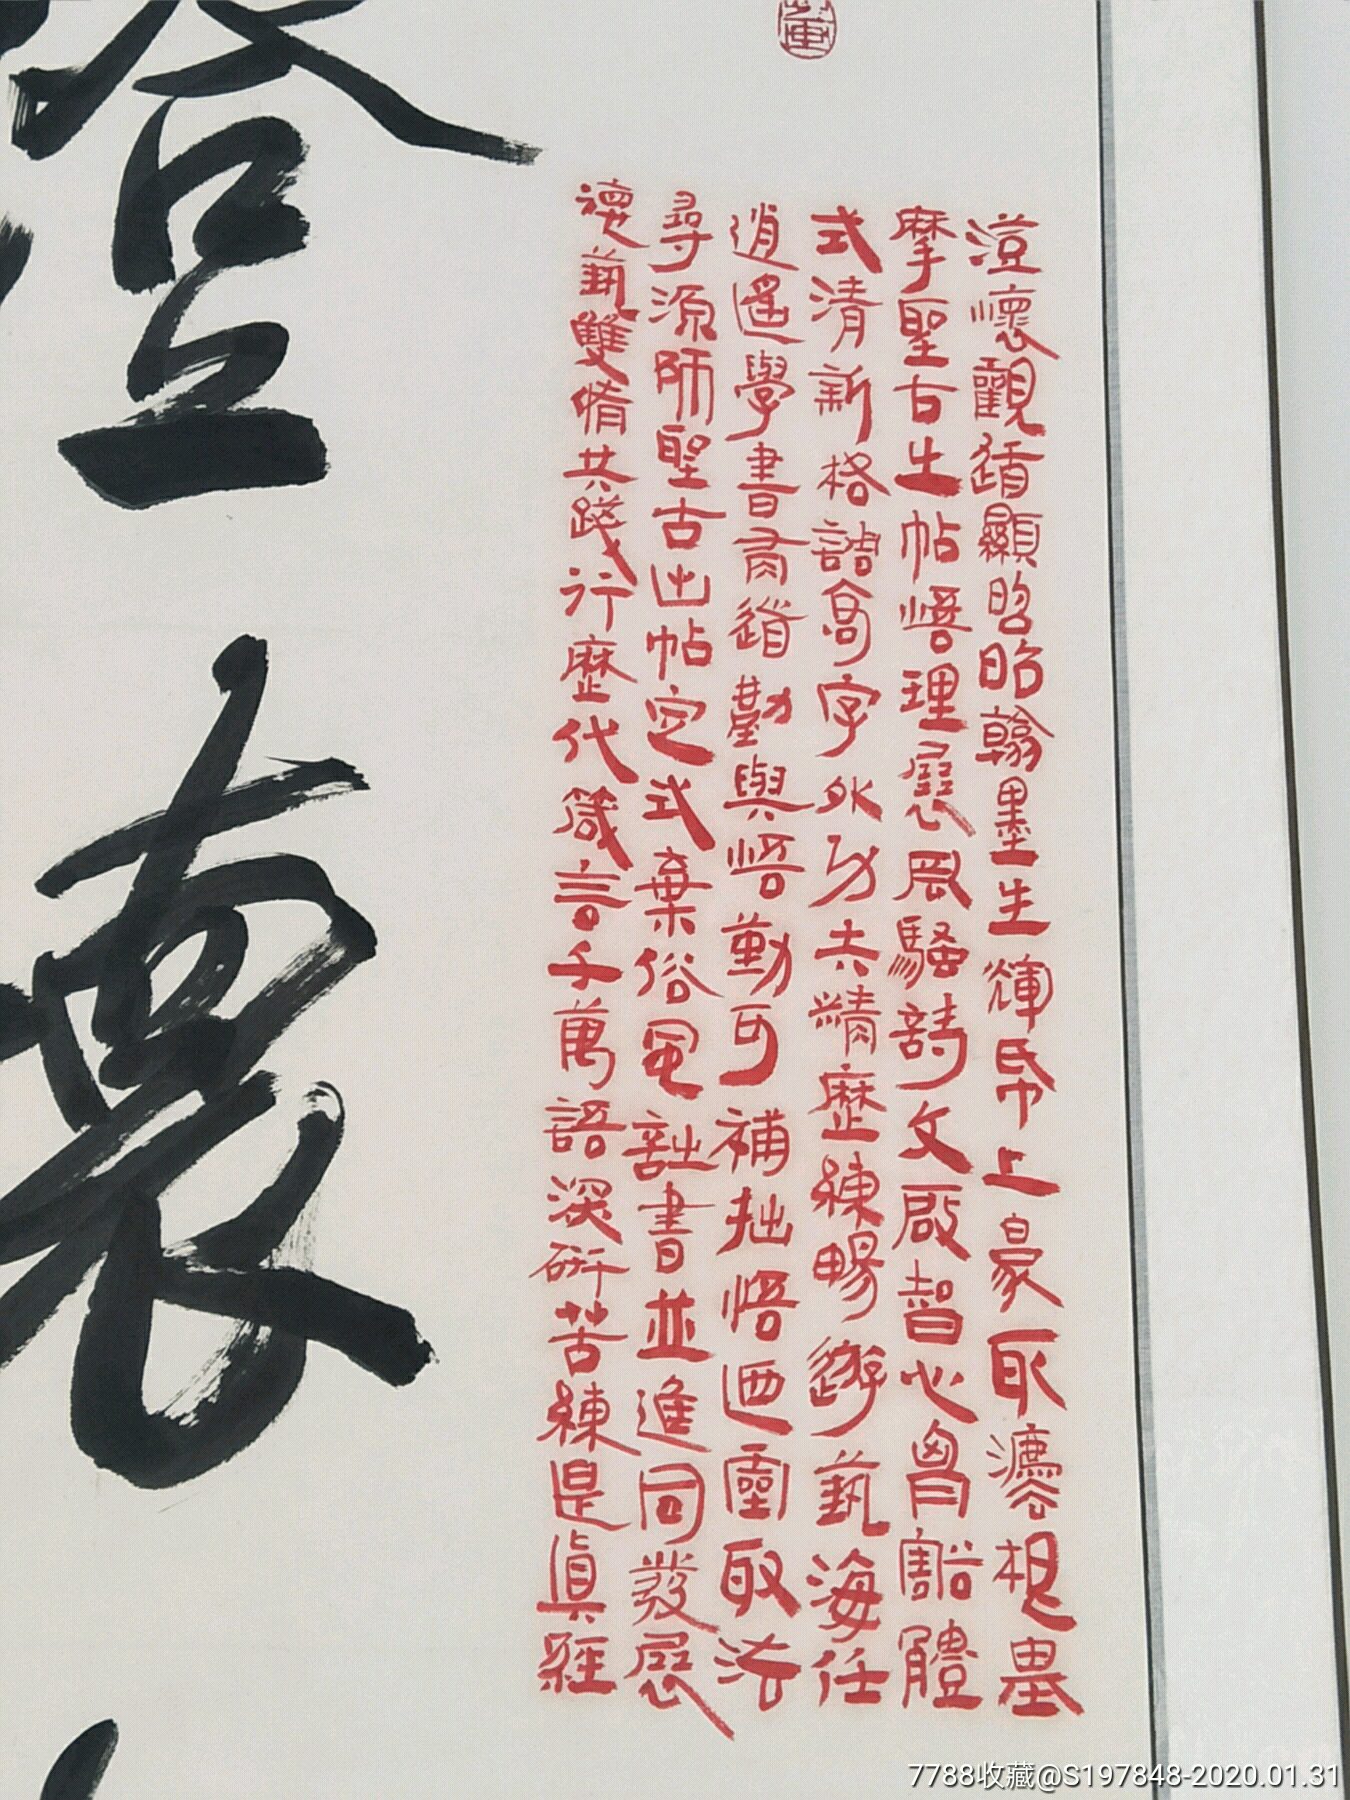 澄懷
澄懷觀道顯昭昭翰墨生輝帋上豪取濂溪根墨
摩聖古生帖悟理展風騷詩文啟智心胷豁體
式清新格調高字外功夫精歷練暢遊藝海任
逍遙學書有道勤與悟勤可補拙悟通靈取法
尋源師聖古出帖定式棄俗風詩書並進同發展
德藝雙脩共踐行歷代箴言千萬語深研苦練是真經
7788收藏@S197848-2020.01.31